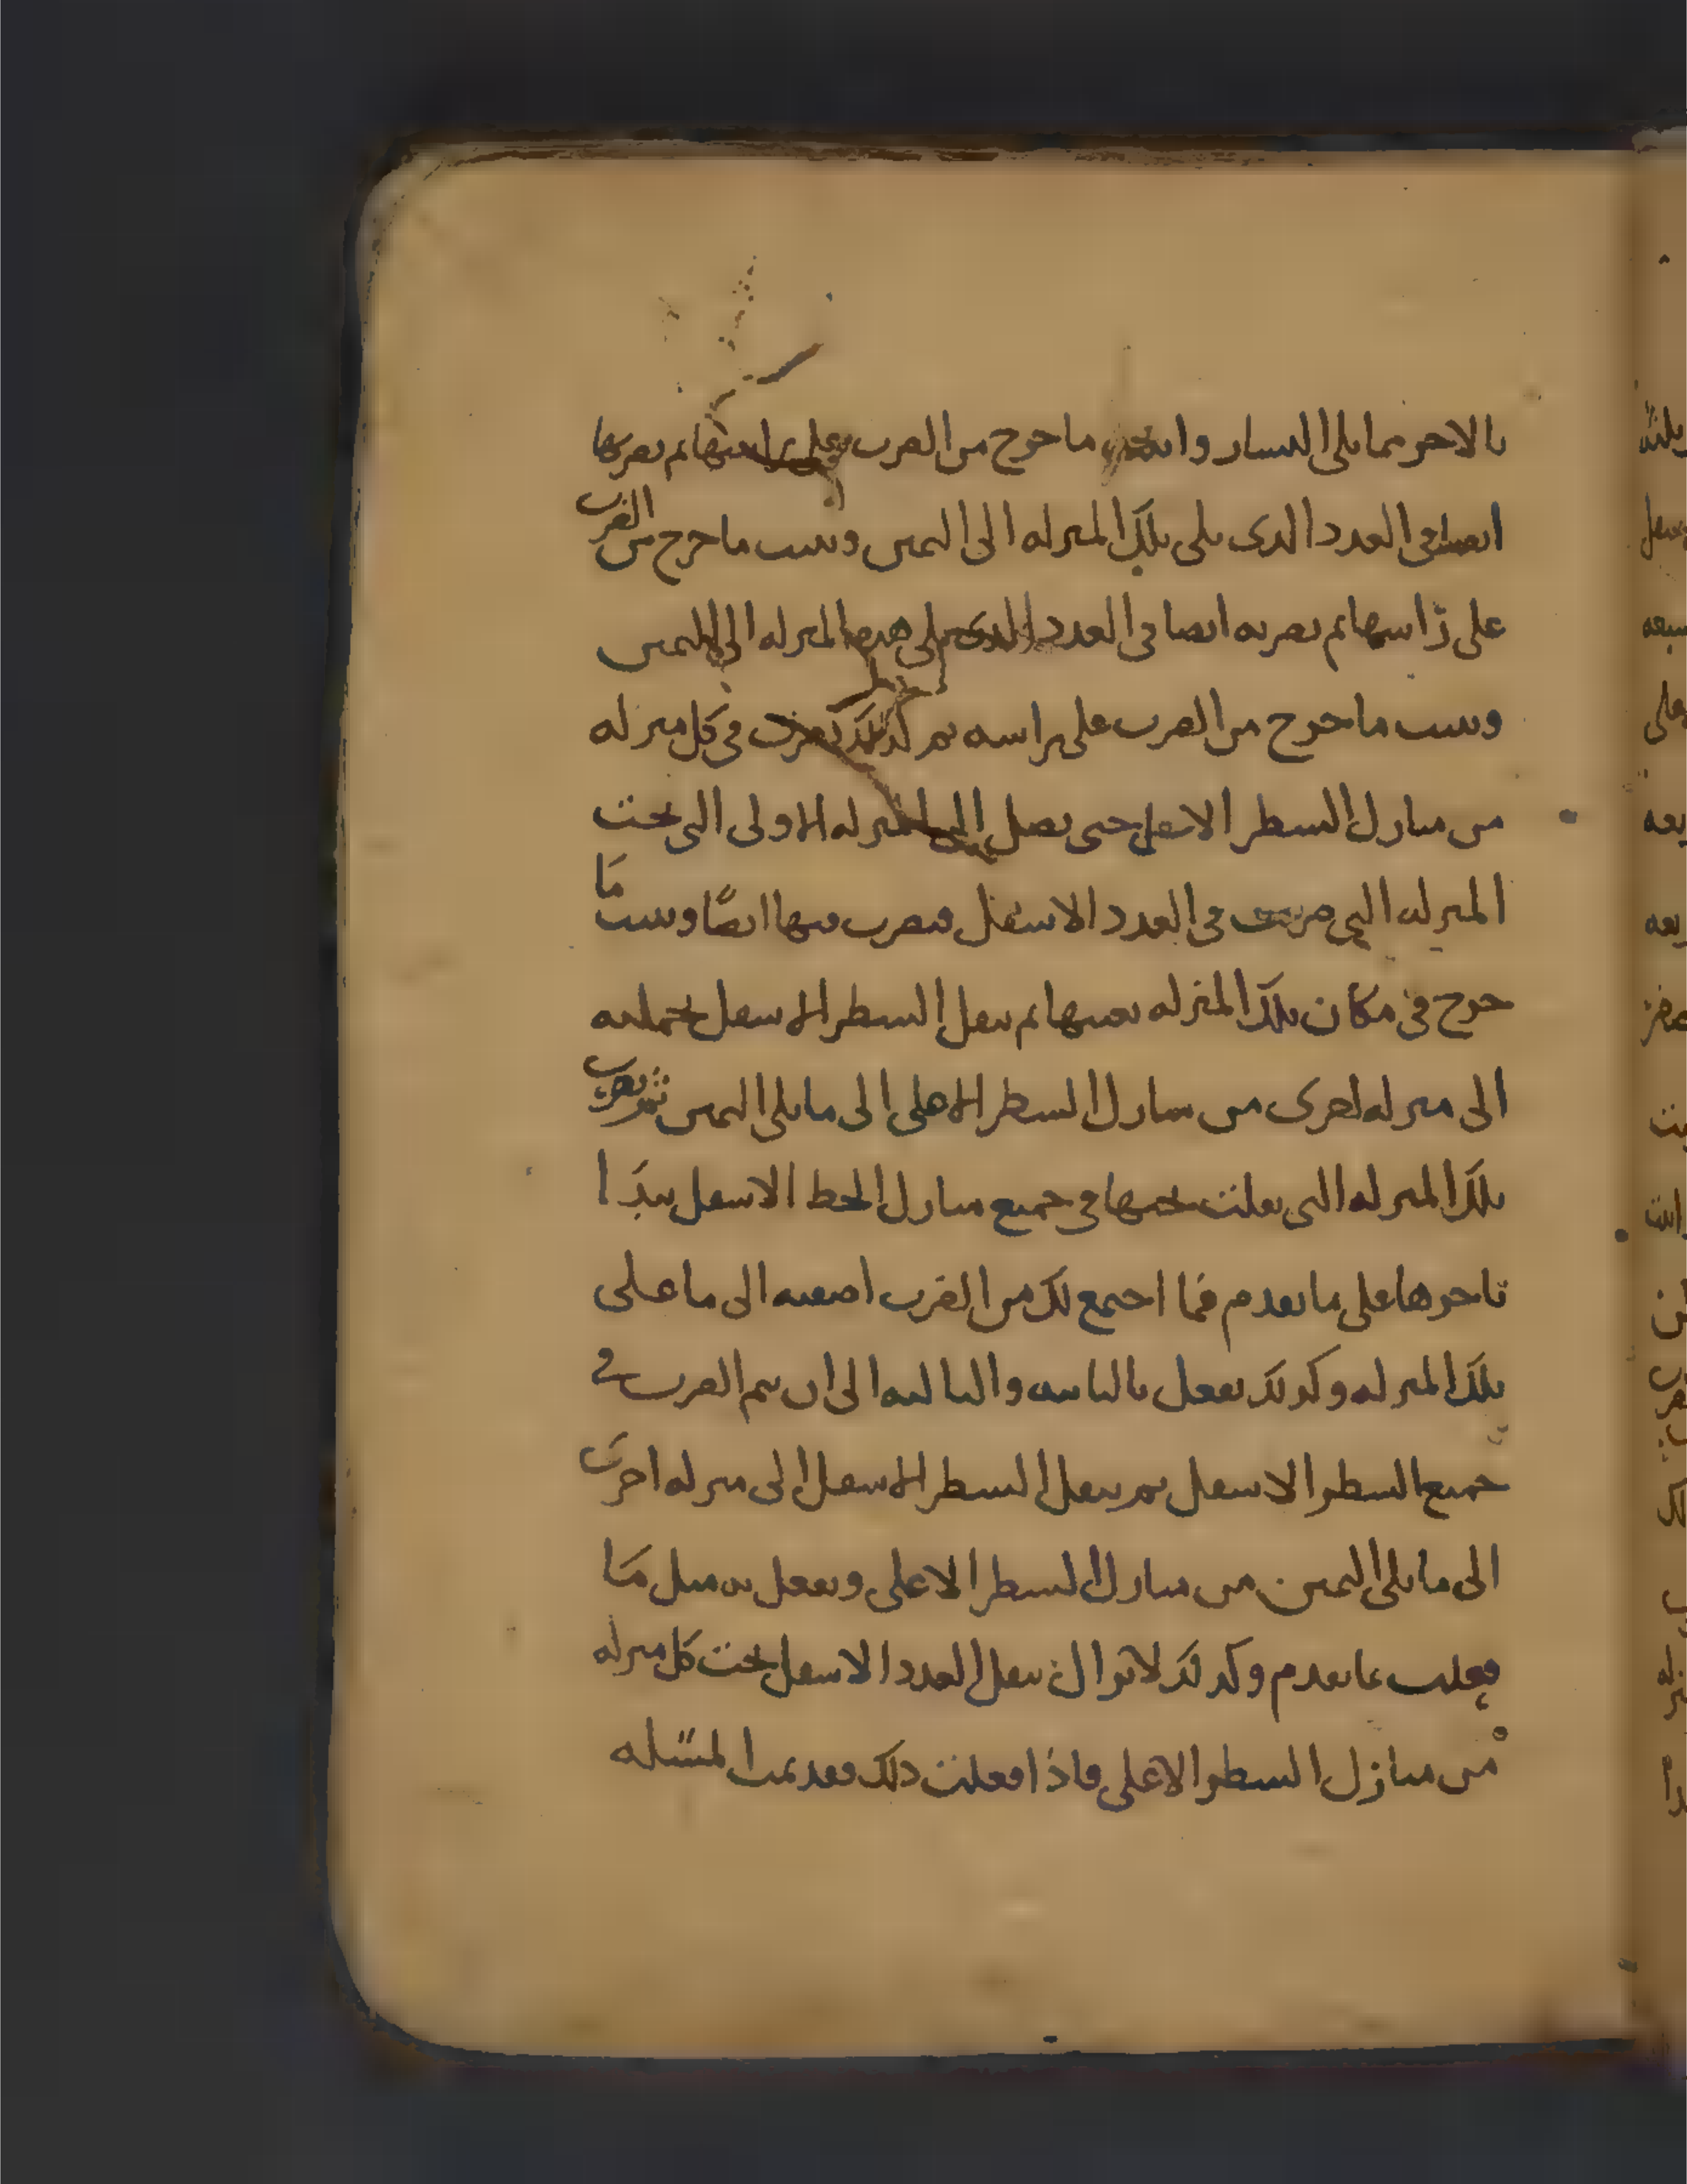 بالاخر مما يلى اليسار وا ما خرج من الضرب على راسها ثم تضربها
ايضا فى العدد الذى يلى تلك المنزله الى اليمين وتثبت ما خرج من الضرب
على راسها ثم تضربه ايضا فى العدد الذى يلى هذه المنزله الى اليمين
وتثبت ما خرج من الضرب على راسه ثم كذلك تضرب فى كل منزله
من منازل السطر الاسفل حتى تصل الى المنزله الاولى التى تحت
المنزله التى ضربت فى العدد الاسفل فتضرب فيها ايضًا وتثبت مَا
خرج فى مكان تلك المنزله بعينها ثم تنقل السطر الاسفل بجملته
الى منزله اخرى من منازل السطر الاعلى الى ما يلى اليمين ثم تضرب
تلك المنزله التى نقلت تحتها فى جميع منازل الخط الاسفل تبدَا
باخرها على ما تقدم فما اجتمع لك من الضرب اضفته الى ما على
تلك المنزله وكذلك تفعل بالثانيه والثالثه الى ان يتم الضرب فى
جميع السطر الاسفل ثم تنقل السطر الاسفل الى منزله اخرى
الى ما يلى اليمين من منازل السطر الاعلى وتفعل به مثل مَا
فعلت بما تقدم وكذلك لا تزال تنقل العدد الاسفل تحت كل منزله
من منازل السطر الاعلى فاذا فعلت ذلك فقد تمت المسله